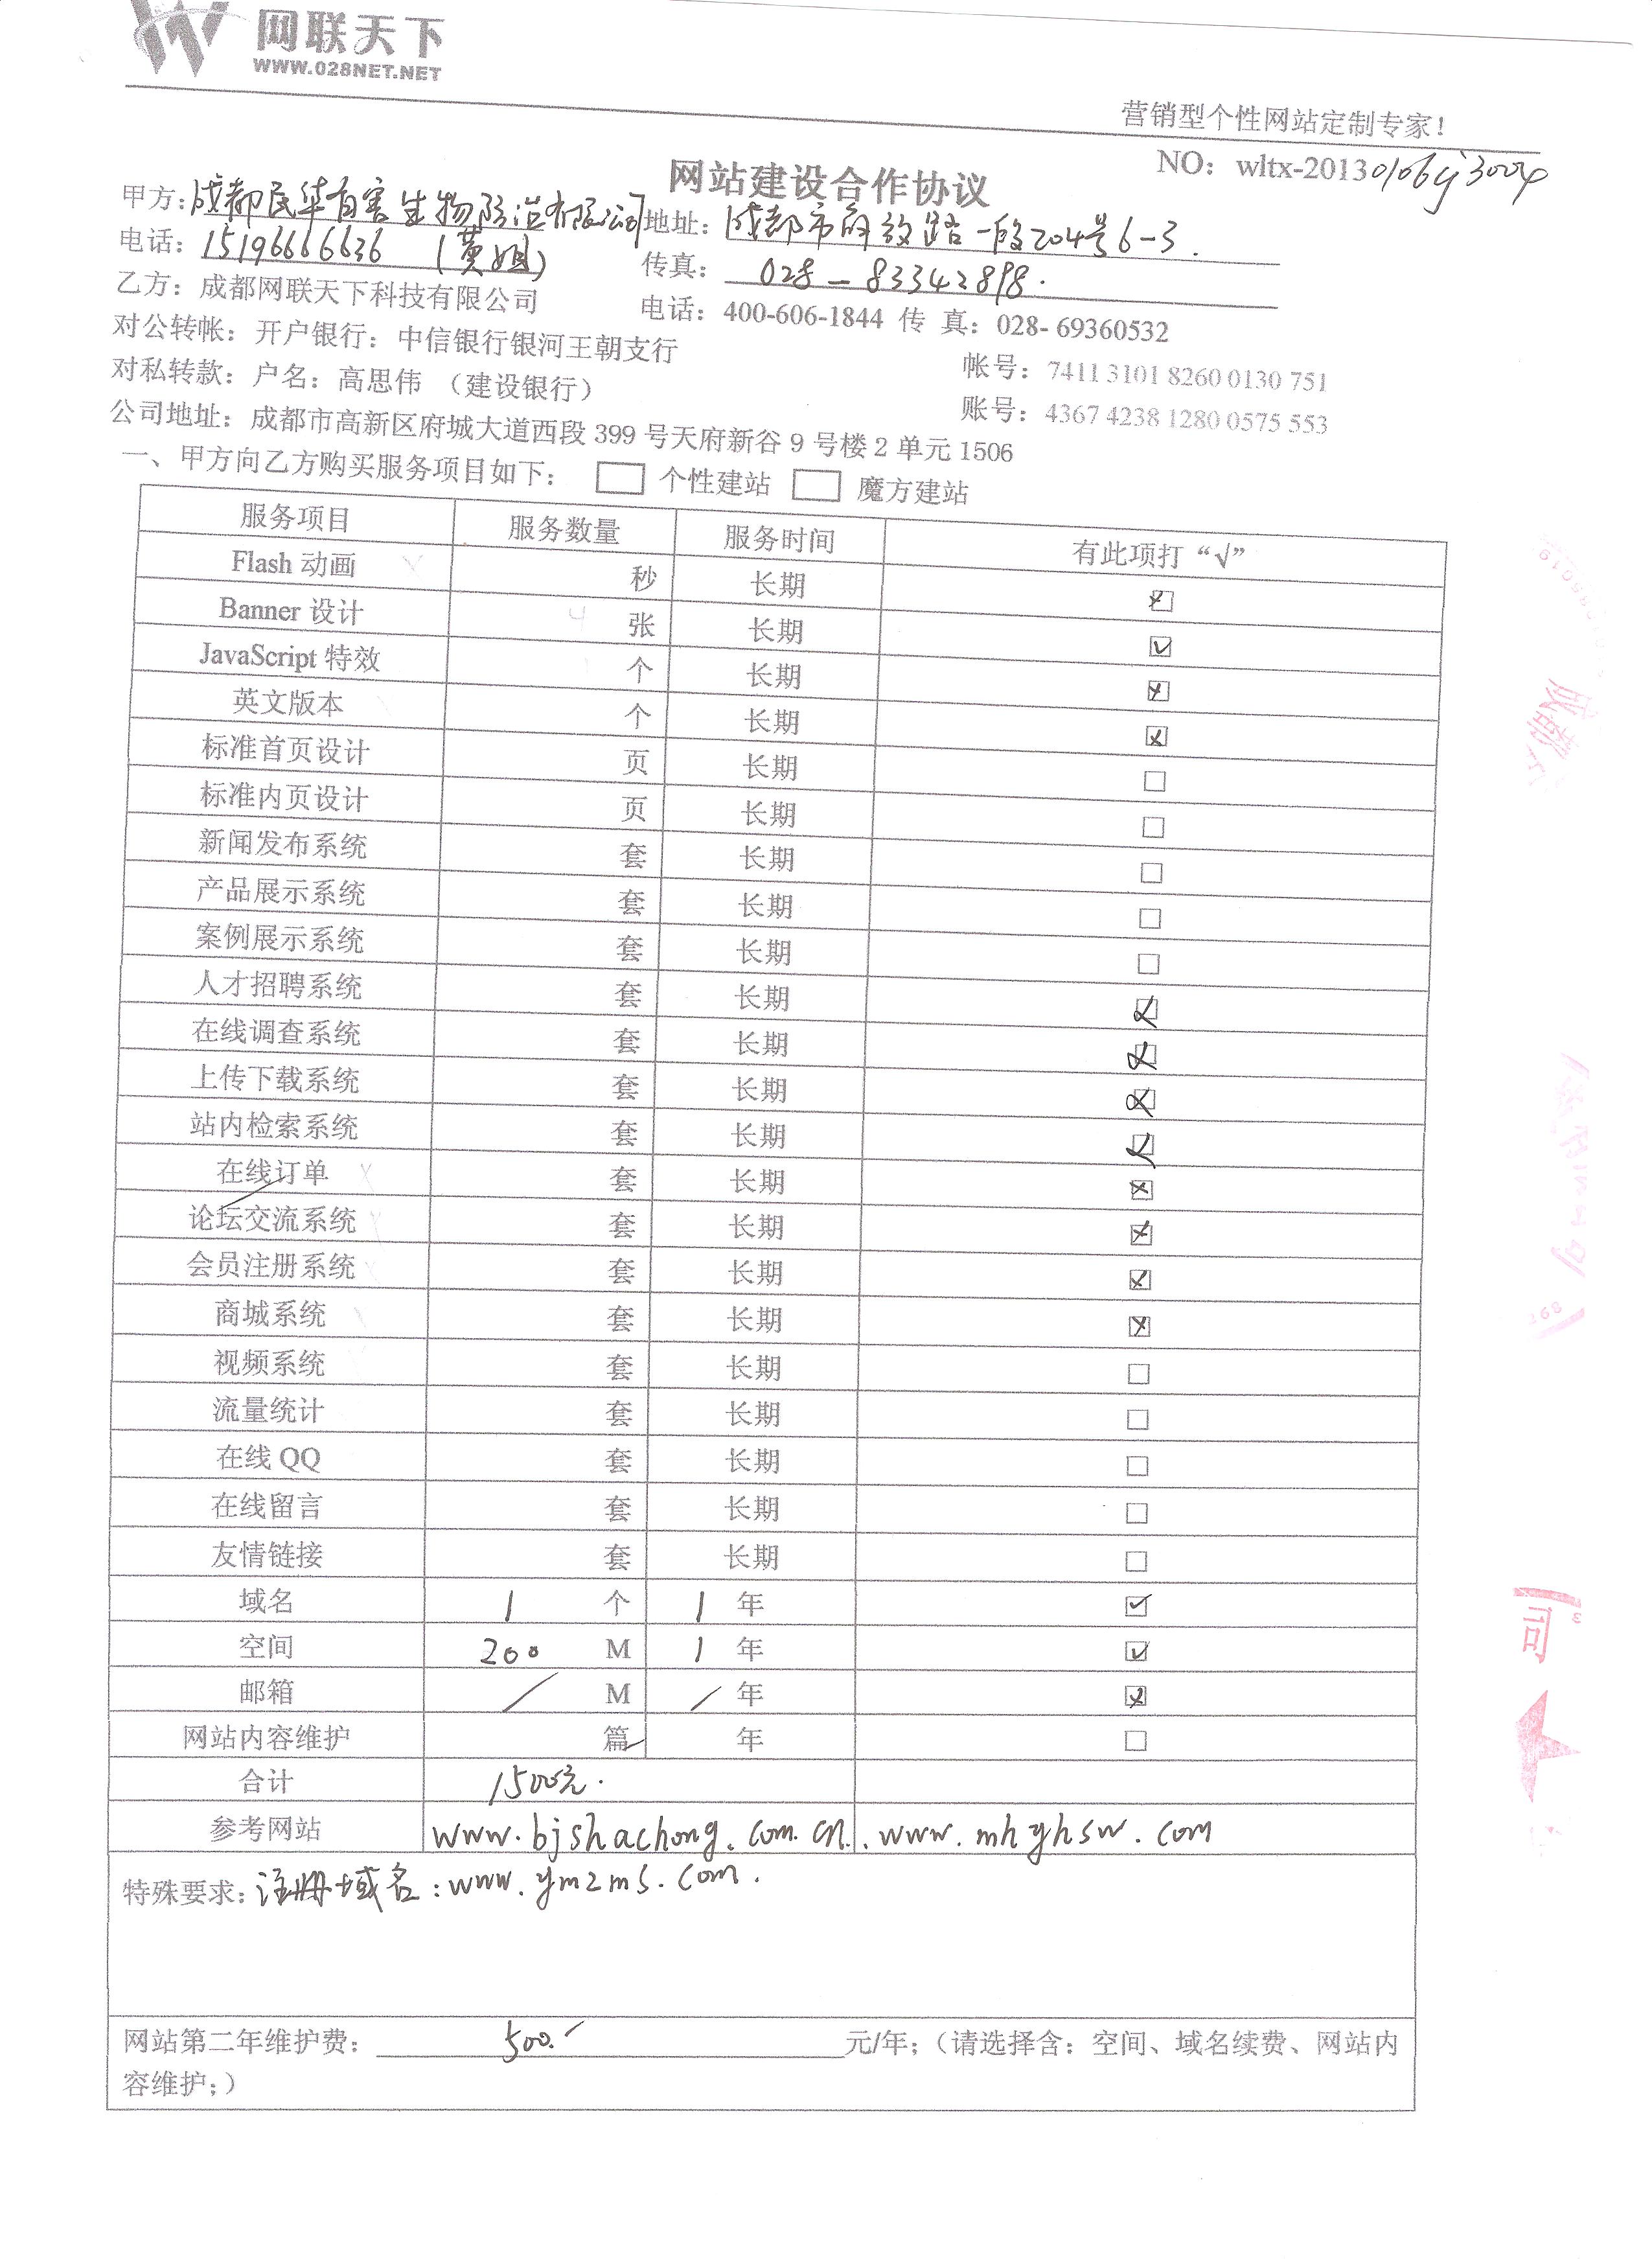 网联天下
WWW.028NET.NET
营销型个性网站定制专家！
NO：wltx-2013
网站建设合作协议
甲方：成都民华有害生物防治有限公司 地址：成都市 路一段204号6-3.
电话：15196666636 (黄姐) 传真：028-83342898.
乙方：成都网联天下科技有限公司 电话：400-606-1844 传 真：028- 69360532
对公转帐：开户银行：中信银行银河王朝支行 帐号：7411 3101 8260 0130 751
对私转款：户名：高思伟 （建设银行） 账号：4367 4238 1280 0575 553
公司地址：成都市高新区府城大道西段 399 号天府新谷 9 号楼 2 单元 1506
一、甲方向乙方购买服务项目如下： □ 个性建站 □ 魔方建站
服务项目 服务数量 服务时间 有此项打“√”
Flash 动画 秒 长期 ☒
Banner 设计 4 张 长期 ☑
JavaScript 特效 个 长期 ☒
英文版本 个 长期 ☒
标准首页设计 页 长期 □
标准内页设计 页 长期 □
新闻发布系统 套 长期 □
产品展示系统 套 长期 □
案例展示系统 套 长期 □
人才招聘系统 套 长期 ☒
在线调查系统 套 长期 ☒
上传下载系统 套 长期 ☒
站内检索系统 套 长期 ☒
在线订单 套 长期 ☒
论坛交流系统 套 长期 ☒
会员注册系统 套 长期 ☒
商城系统 套 长期 ☒
视频系统 套 长期 □
流量统计 套 长期 □
在线 QQ 套 长期 □
在线留言 套 长期 □
友情链接 套 长期 □
域名 1 个 1 年 ☑
空间 200 M 1 年 ☑
邮箱 / M / 年 ☒
网站内容维护 篇 年 □
合计 1500元.
参考网站 www.bjshachong.com.cn. .www.mhyhsw.com
特殊要求：注册域名：www.ymzms.com.
网站第二年维护费： 500.- 元/年；（请选择含：空间、域名续费、网站内
容维护；）
成都
司